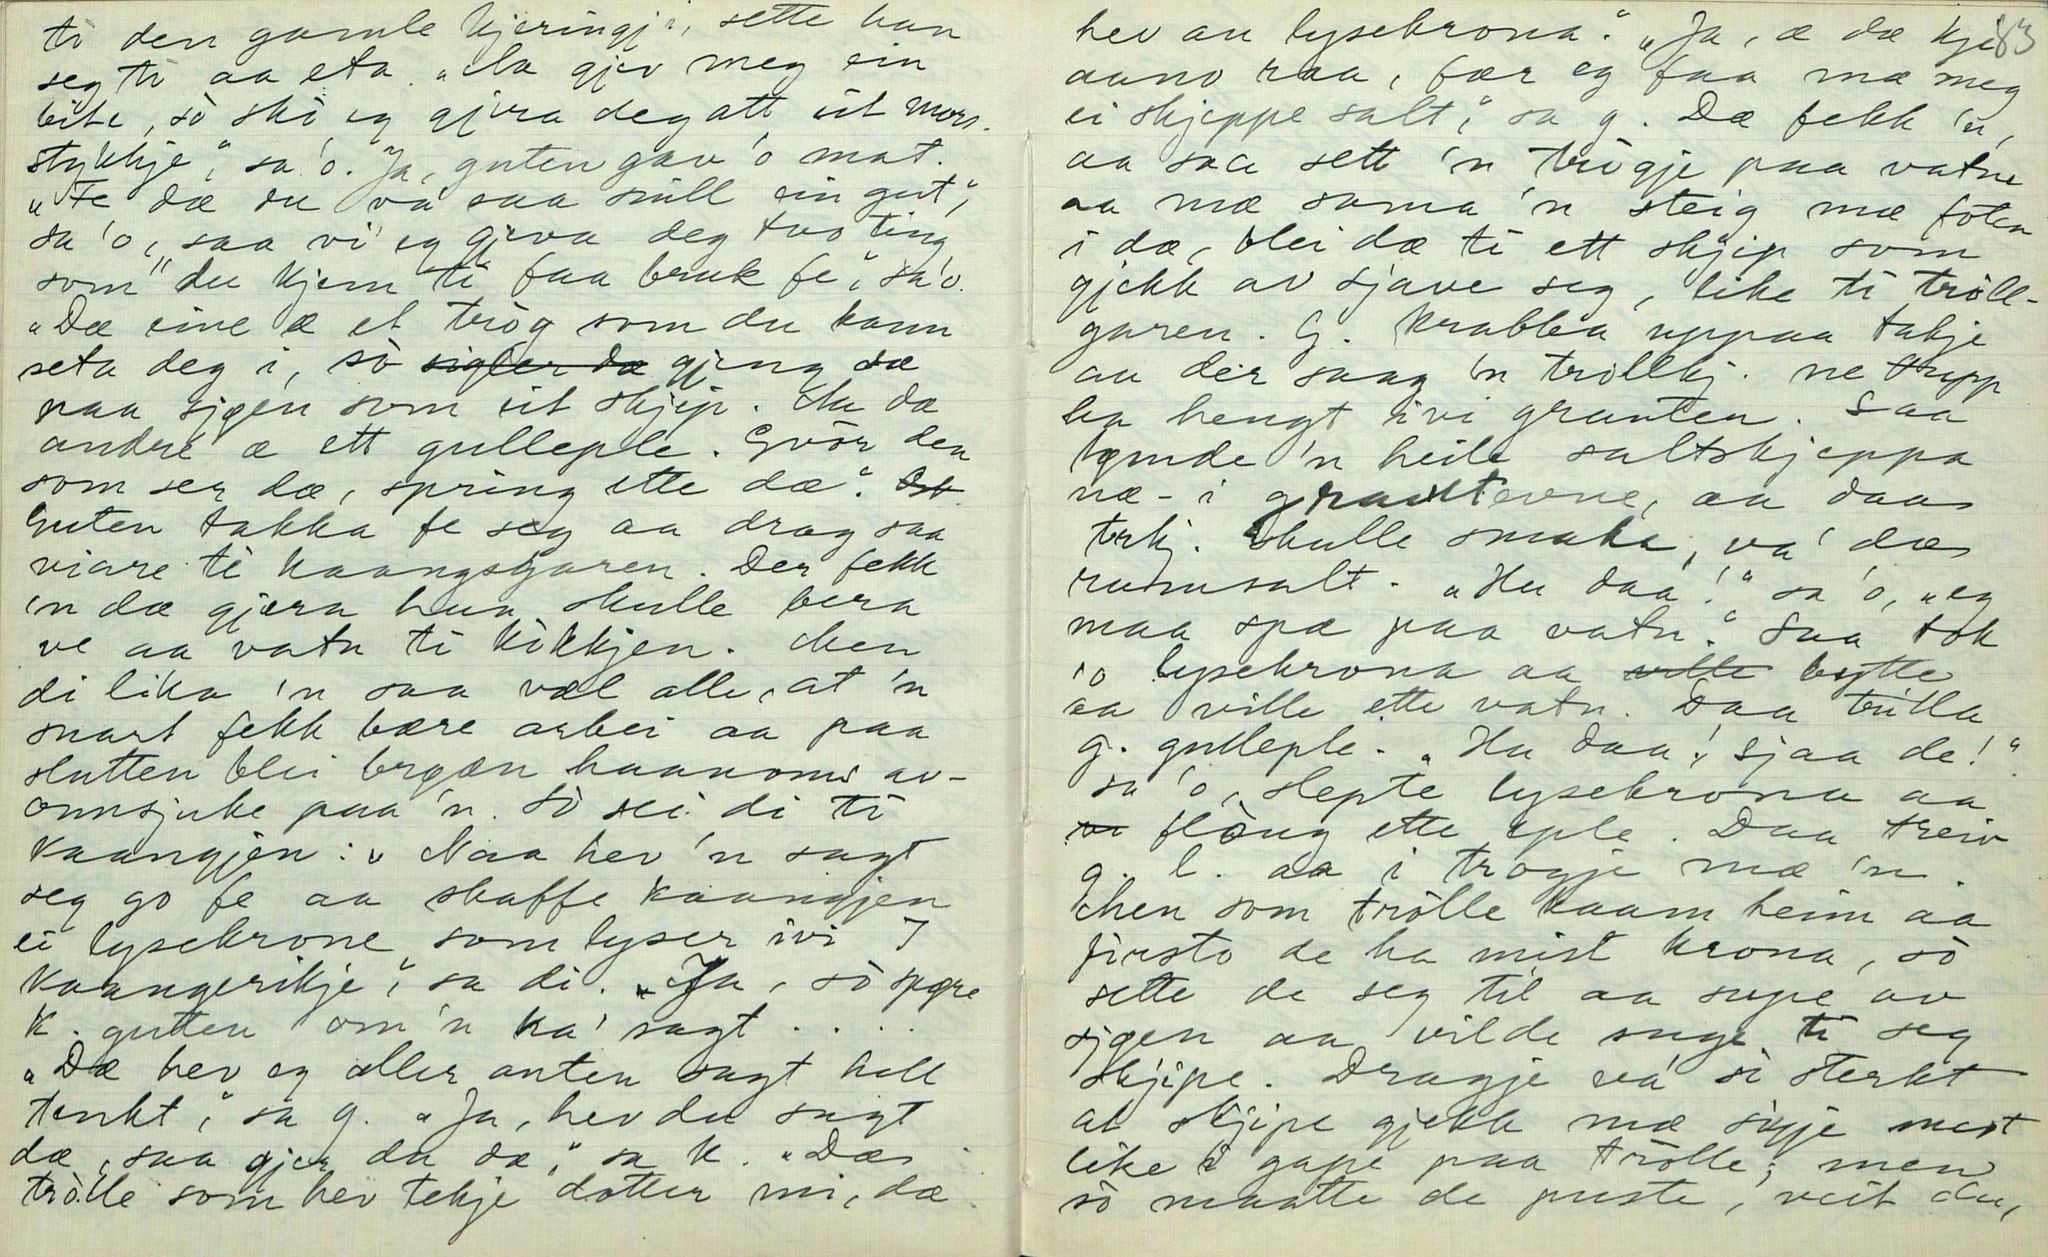 ti den gamle kjeringji, sette han
seg ti aa eta. „Aa gjev meg ein
bite, sò ski eg gjera deg att eit mors-
stykkje", sa'o. Ja, guten gav'o mat.
„Te dæ du va saa snill ein gut",
sa'o, „saa vi' eg gjeva deg tvo ting
som du kjem ti faa bruk fe", sa'o.
„Dæ eine æ et tròg som du kann
seta deg i, sò sigler dæ gjeng dæ
paa sjøen som eit skjip. Au dæ
andre æ ett gulleple. Gvòr den
som ser dæ, spring ette dæ".
Guten takka fe seg aa drog saa
viare ti kaangsgaren. Der fekk
'n dæ gjera han skulle bera
ve aa vatn ti kikkjen. Men
di lika 'n saa væl alle, at 'n
snart fekk bære arbei aa paa
slutten blei brøæn haanoms av-
onnsjuke paa 'n. Sò sei di ti
kaangjen: „Naa hev 'n sagt
seg go fe aa skaffe kaangjen
ei lysekrone som lyser ivi 7
kaangerikje", sa di. „Ja, sò spøre
K. guten om 'n ha' sagt ....
„Dæ hev eg aller anten sagt hell
tenkt", sa g. „Ja, hev du sagt
dæ, saa gjer du dæ", sa K. „Dæ
tròlle som hev tekje dotter mi, dæ
83
hev au lysekrona." „Ja, æ dæ kje
aano raa, fær eg faa mæ meg
ei skjeppe salt", sa g. Dæ fekk 'n,
aa saa sett 'n trògje paa vatne
aa mæ sama 'n steig mæ foten
i dæ, blei dæ ti ett skjip som
gjekk av sjave seg, like ti tròll-
garen. G. krabba uppaa takje
au der saag 'n tròllkj. ne
ha hengt ivi grauten. Saa
tømde 'n heile saltskjeppa
næ- i grautevne, aa daa
trkj. skulle smaka, va' dæ
rumsalt. „Hu daa!" sa'o, „eg
maa spæ paa vatn." Saa tok
'o lysekrona aa ville bytte
aa ville ette vatn. Daa trilla
g. gulleple. „Hu daa! sjaa de!"
sa'o, slepte lysekrona aa
flòug ette eple. Daa treiv
g. l. aa i trogje mæ 'n.
Men som tròlle kaam heim aa
firsto de ha mist krona, sò
sette de seg til aa supe av
sjøen aa vilde suge ti seg
skjipe. Dragje va' si sterkt
at skjipe gjekk mæ sigje mest
like i gape paa tròlle; men
sò maatte de puste, veit du,